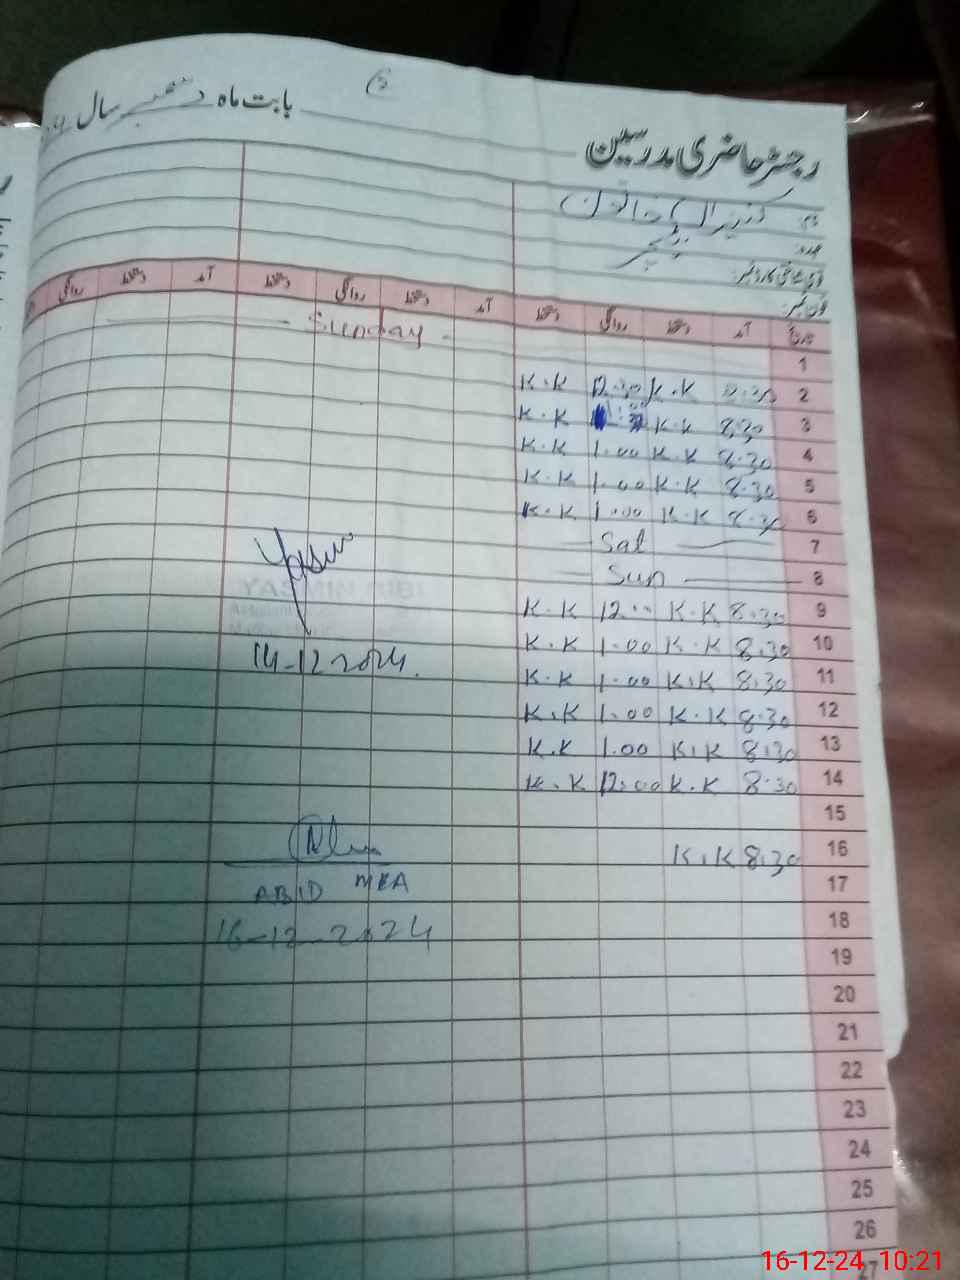 بابت ماہ دسمبر سال
رجسٹر حاضری مدرسین
نام
عہدہ
ٹیچر
فون نمبر
تاریخ آمد دستخط روانگی دستخط آمد دستخط روانگی دستخط آمد دستخط روانگی
1 Sunday
2 K.K 12.30 K.K
3 K.K K.K 8.30
4 K.K 1.00 K.K 8.30
5 K.K 1.00 K.K 8.30
6 K.K 1.00 K.K 8.30
7 Sat
8 Sun
9 K.K 12.00 K.K 8.30
10 K.K 1.00 K.K 8.30
11 K.K 1.00 K.K 8.30
12 K.K 1.00 K.K 8.30
13 K.K 1.00 K.K 8.30
14 K.K 12.00 K.K 8.30
15
16 K.K 8.30
17
18
19
20
21
22
23
24
25
26
27
Yasmin
YASMIN BIBI
14-12-2024.
ABID MEA
16-12-2024
16-12-24, 10:21